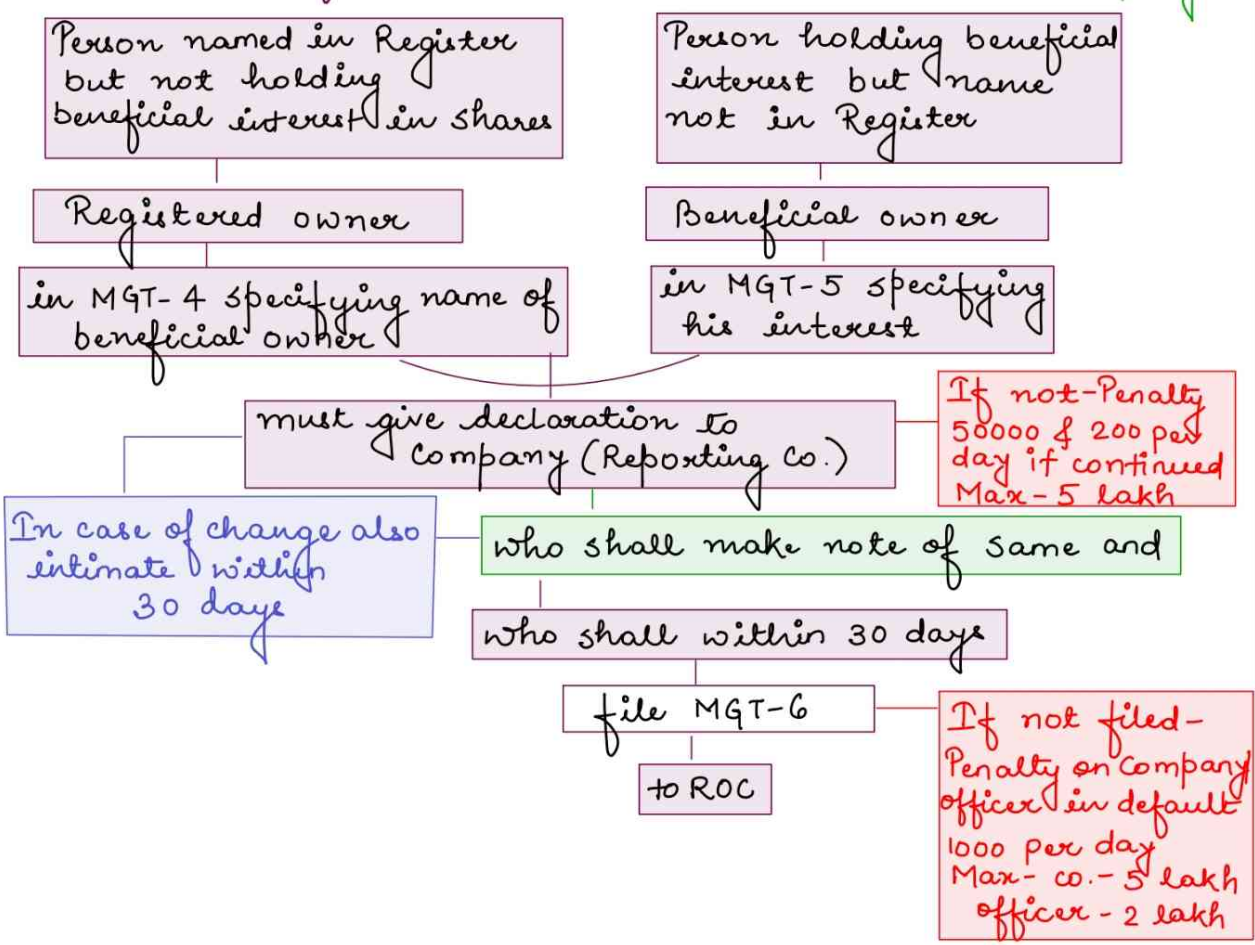 Person named in Register
but not holding
beneficial interest in shares
Person holding beneficial
interest but name
not in Register
Registered owner
Beneficial owner
in MGT-4 specifying name of
beneficial owner
in MGT-5 specifying
his interest
must give declaration to
Company (Reporting Co.)
If not-Penalty
50000 & 200 per
day if continued
Max-5 lakh
In case of change also
intimate within
30 days
who shall make note of same and
who shall within 30 days
file MGT-6
to ROC
If not filed-
Penalty on Company
officer in default
1000 per day
Max- co.- 5 lakh
officer - 2 lakh